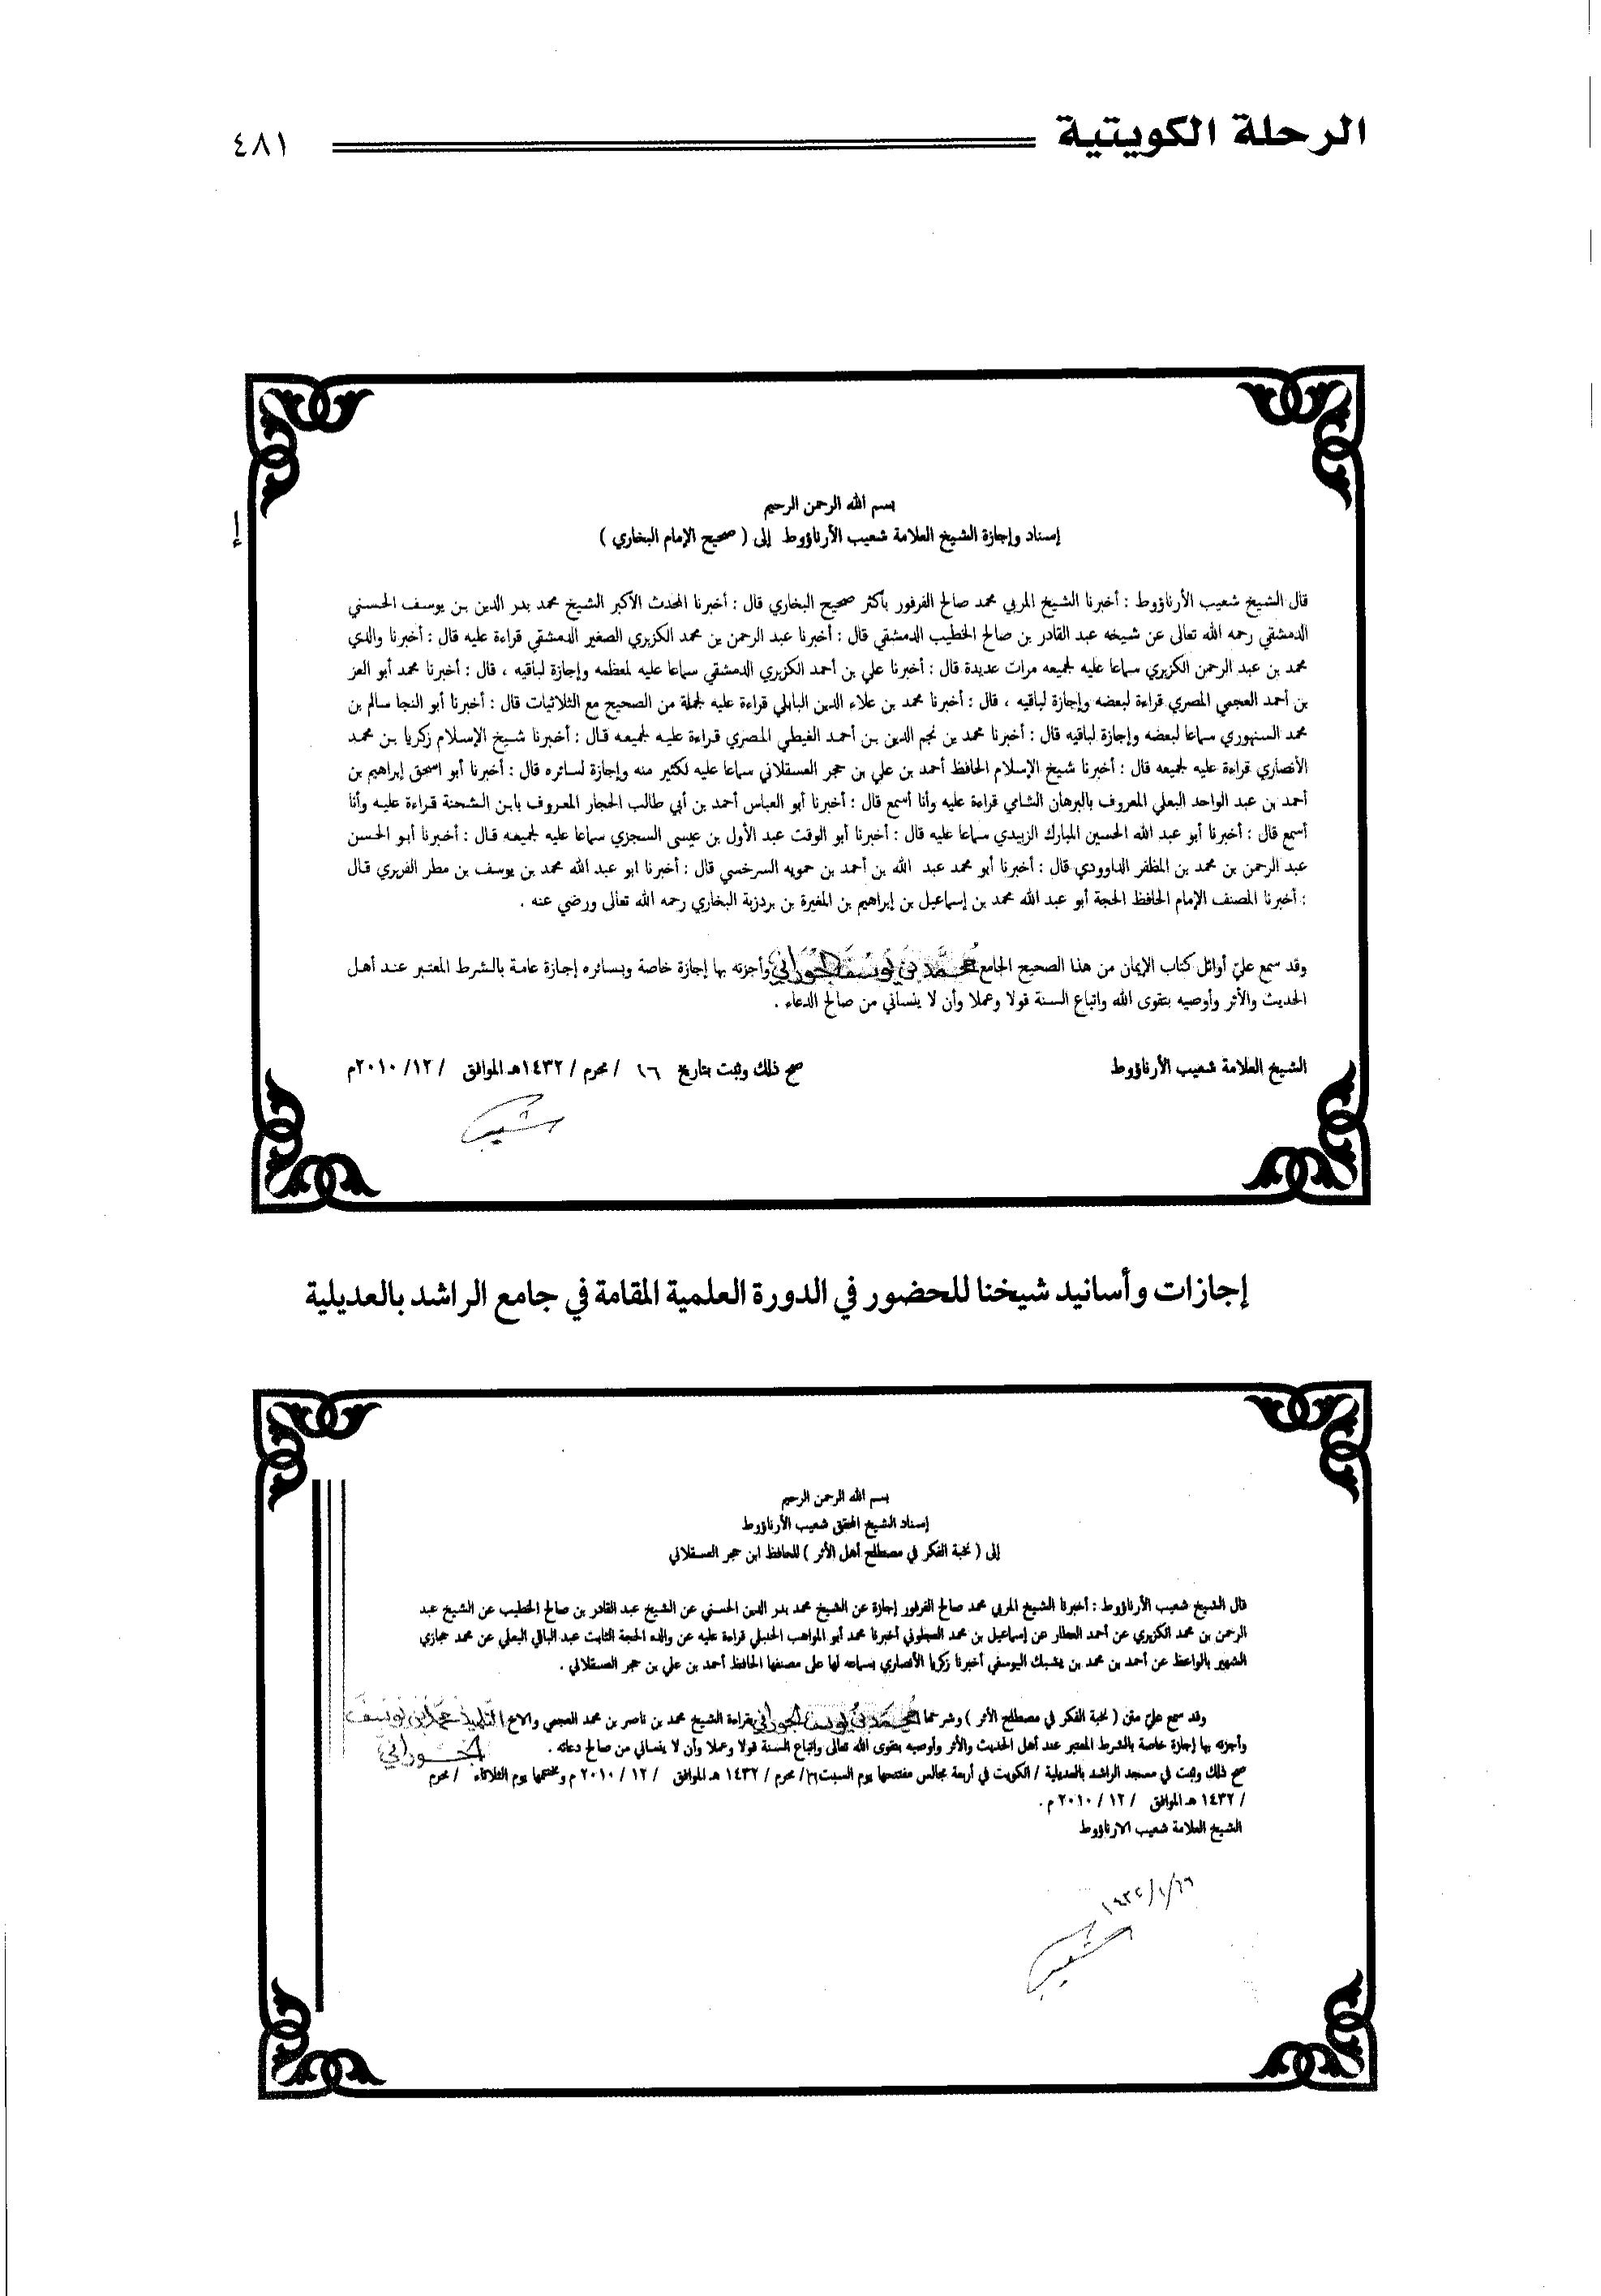 الرحلة الكويتية
٤٨١
بسم الله الرحمن الرحيم
إسناد وإجازة الشيخ العلامة شعيب الأرناؤوط إلى ( صحيح الإمام البخاري )
قال الشيخ شعيب الأرناؤوط : أخبرنا الشيخ المربي محمد صالح الفرفور بأكثر صحيح البخاري قال : أخبرنا المحدث الأكبر الشيخ محمد بدر الدين بن يوسف الحسني
الدمشقي رحمه الله تعالى عن شيخه عبد القادر بن صالح الخطيب الدمشقي قال : أخبرنا عبد الرحمن بن محمد الكزبري الصغير الدمشقي قراءة عليه قال : أخبرنا والدي
محمد بن عبد الرحمن الكزبري سماعا عليه لجميعه مرات عديدة قال : أخبرنا علي بن أحمد الكزبري الدمشقي سماعا عليه لمعظمه وإجازة لباقيه ، قال : أخبرنا محمد أبو العز
بن أحمد العجمي المصري قراءة لبعضه وإجازة لباقيه ، قال : أخبرنا محمد بن علاء الدين البابلي قراءة عليه لجملة من الصحيح مع الثلاثيات قال : أخبرنا أبو النجا سالم بن
محمد السنهوري سماعا لبعضه وإجازة لباقيه قال : أخبرنا محمد بن نجم الدين بن أحمد الغيطي المصري قراءة عليه لجميعه قال : أخبرنا شيخ الإسلام زكريا بن محمد
الأنصاري قراءة عليه لجميعه قال : أخبرنا شيخ الإسلام الحافظ أحمد بن علي بن حجر العسقلاني سماعا عليه لكثير منه وإجازة لسائره قال : أخبرنا أبو اسحق إبراهيم بن
أحمد بن عبد الواحد البعلي المعروف بالبرهان الشامي قراءة عليه وأنا أسمع قال : أخبرنا أبو العباس أحمد بن أبي طالب الحجار المعروف بابن الشحنة قراءة عليه وأنا
أسمع قال : أخبرنا أبو عبد الله الحسين المبارك الزبيدي سماعا عليه قال : أخبرنا أبو الوقت عبد الأول بن عيسى السجزي سماعا عليه لجميعه قال : أخبرنا أبو الحسن
عبد الرحمن بن محمد بن المظفر الداوودي قال : أخبرنا أبو محمد عبد الله بن أحمد بن حمويه السرخسي قال : أخبرنا ابو عبد الله محمد بن يوسف بن مطر الفربري قال
: أخبرنا المصنف الإمام الحافظ الحجة أبو عبد الله محمد بن إسماعيل بن إبراهيم بن المغيرة بن بردزبة البخاري رحمه الله تعالى ورضي عنه .
وقد سمع عليّ أوائل كتاب الإيمان من هذا الصحيح الجامع محمد بن يوسف الجوراني وأجزته بها إجازة خاصة وبسائره إجازة عامة بالشرط المعتبر عند أهل
الحديث والأثر وأوصيه بتقوى الله واتباع السنة قولا وعملا وأن لا ينساني من صالح الدعاء .
الشيخ العلامة شعيب الأرناؤوط
صح ذلك وثبت بتاريخ ١٦ / محرم / ١٤٣٢هـ الموافق / ١٢/ ٢٠١٠م
شعيب
إجازات وأسانيد شيخنا للحضور في الدورة العلمية المقامة في جامع الراشد بالعديلية
بسم الله الرحمن الرحيم
إسناد الشيخ المحقق شعيب الأرناؤوط
إلى ( نخبة الفكر في مصطلح أهل الأثر ) للحافظ ابن حجر العسقلاني
قال الشيخ شعيب الأرناؤوط : أخبرنا الشيخ المربي محمد صالح الفرفور إجازة عن الشيخ محمد بدر الدين الحسني عن الشيخ عبد القادر بن صالح الخطيب عن الشيخ عبد
الرحمن بن محمد الكزبري عن أحمد العطار عن إسماعيل بن محمد العجلوني أخبرنا محمد أبو المواهب الحنبلي قراءة عليه عن والده الحجة الثابت عبد الباقي البعلي عن محمد حجازي
الشهير بالواعظ عن أحمد بن محمد بن يشبك اليوسفي أخبرنا زكريا الأنصاري بسماعه لها على مصنفها الحافظ أحمد بن علي بن حجر العسقلاني .
وقد سمع عليّ متن ( نخبة الفكر في مصطلح الأثر ) وشرحها محمد بن يوسف الجوراني بقراءة الشيخ محمد بن ناصر بن محمد العجمي والاخ التلميذ محمد بن يوسف
الجوراني
وأجزته بها إجازة خاصة بالشرط المعتبر عند أهل الحديث والأثر وأوصيه بتقوى الله تعالى واتباع السنة قولا وعملا وأن لا ينساني من صالح دعائه .
صح ذلك وثبت في مسجد الراشد بالعديلية / الكويت في أربعة مجالس مفتتحها يوم السبت ١٦/ محرم / ١٤٣٢ هـ الموافق / ١٢ / ٢٠١٠ م ومختتمها يوم الثلاثاء / محرم
/ ١٤٣٢ هـ الموافق / ١٢ / ٢٠١٠ م .
الشيخ العلامة شعيب الارناؤوط
شعيب